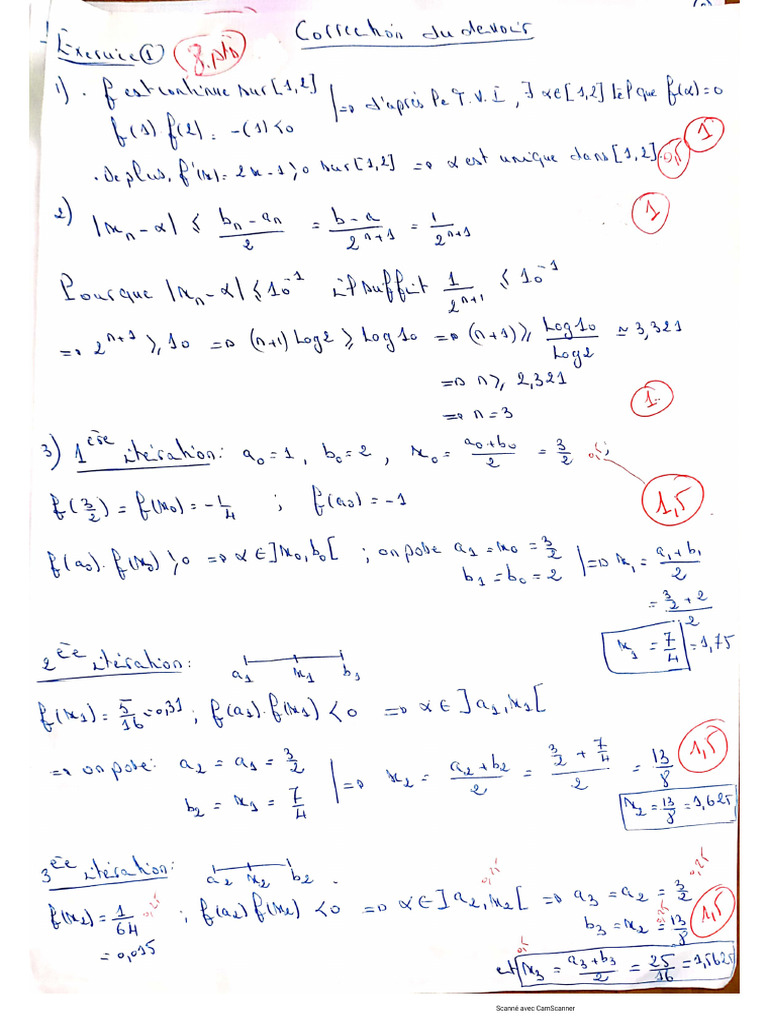 Correction du devoir
Exercice ① 8 pts
1) . f est continue sur [1,2] | => d'après le T.V.I, ∃ α∈[1,2] tel que f(α)=0
f(1).f(2) = -(1)<0
1
. De plus, f'(x)= 2x-1 >0 sur [1,2] => α est unique dans [1,2]. 0,5
2) |x_n-α| ≤ (b_n-a_n)/2 = (b-a)/2^{n+1} = 1/2^{n+1} 1
Pour que |x_n-α| ≤ 10^{-1} il suffit 1/2^{n+1} ≤ 10^{-1}
=> 2^{n+1} ≥ 10 => (n+1) Log2 ≥ Log10 => (n+1) ≥ Log10/Log2 ≃ 3,321
=> n ≥ 2,321
=> n=3 1
3) 1ère itération: a_0=1, b_0=2, x_0= (a_0+b_0)/2 = 3/2
f(3/2) = f(x_0) = -1/4 ; f(a_0) = -1 1,5
f(a_0).f(x_0) >0 => α∈]x_0,b_0[ ; on pose a_1=x_0=3/2 | => x_1= (a_1+b_1)/2
b_1=b_0=2
= (3/2+2)/2
x_1 = 7/4 = 1,75
2ème itération: a_1 x_1 b_1
f(x_1)= 5/16=0,31 ; f(a_1).f(x_1) <0 => α∈]a_1,x_1[
=> on pose: a_2=a_1=3/2 | => x_2= (a_2+b_2)/2 = (3/2+7/4)/2 = 13/8 1,5
b_2=x_1=7/4
x_2=13/8=1,625
3ème itération: a_2 x_2 b_2 .
f(x_2)=1/64 0,25 ; f(a_2) f(x_2) <0 => α∈]a_2,x_2[ 0,25 => a_3=a_2=3/2 0,25
=0,015
b_3=x_2=13/8 0,25 1,5
et x_3= (a_3+b_3)/2 = 25/16 =1,5625 0,5
Scanné avec CamScanner